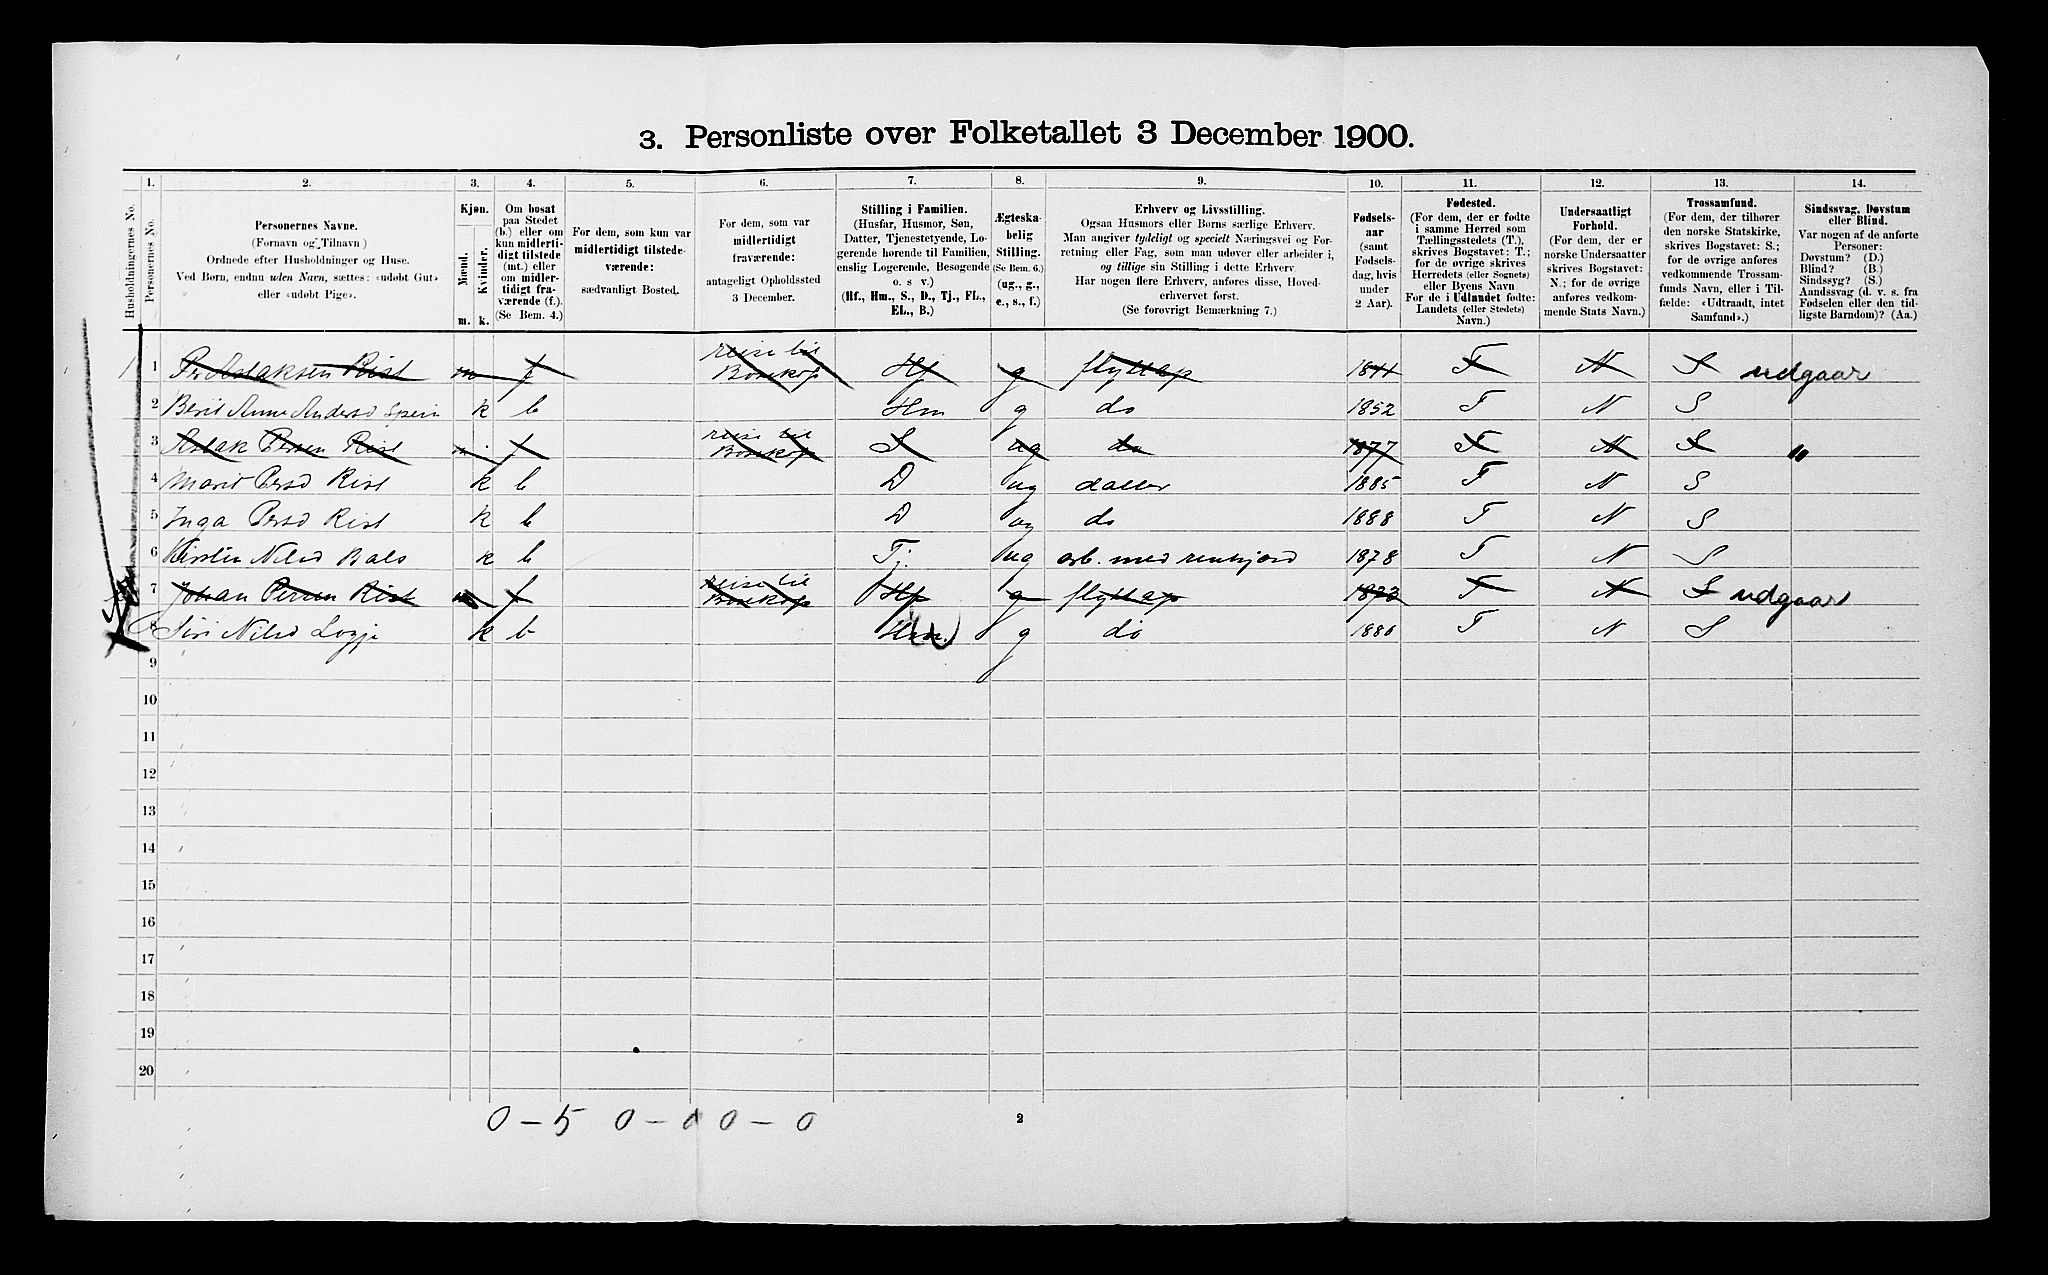 3. Personliste over Folketallet 3 December 1900.
1. 2. 3. 4. 5. 6. 7. 8. 9. 10. 11. 12. 13. 14.
Husholdningernes No.
Personernes No.
Personernes Navne.
(Fornavn og Tilnavn)
Ordnede efter Husholdninger og Huse.
Ved Børn, endnu uden Navn, sættes: «udøbt Gut»
eller «udøbt Pige».
Kjøn.
Mænd.
Kvinder.
m. k.
Om bosat
paa Stedet
(b.) eller om
kun midlerti-
digt tilstede
(mt.) eller
om midler-
tidigt fra-
værende (f.)
(Se Bem. 4.)
For dem, som kun var
midlertidigt tilstede-
værende:
sædvanligt Bosted.
For dem, som var
midlertidigt
fraværende:
antageligt Opholdssted
3 December.
Stilling i Familien.
(Husfar, Husmor, Søn,
Datter, Tjenestetyende, Lo-
gerende hørende til Familien,
enslig Logerende, Besøgende
o. s v.)
(Hf., Hm., S., D., Tj., FL.,
EL., B.)
Ægteska-
belig
Stilling.
(Se Bem. 6.)
(ug., g.,
e., s., f.)
Erhverv og Livsstilling.
Ogsaa Husmors eller Børns særlige Erhverv.
Man angiver tydeligt og specielt Næringsvei og For-
retning eller Fag, som man udøver eller arbeider i,
og tillige sin Stilling i dette Erhverv.
Har nogen flere Erhverv, anføres disse, Hoved-
erhvervet først.
(Se forøvrigt Bemærkning 7.)
Fødsels-
aar
(samt
Fødsels-
dag, hvis
under
2 Aar).
Fødested.
(For dem, der er fødte
i samme Herred som
Tællingsstedets (T.),
skrives Bogstavet: T.;
for de øvrige skrives
Herredets (eller Sognets)
eller Byens Navn
For de i Udlandet fødte:
Landets (eller Stedets)
Navn.)
Undersaatligt
Forhold.
(For dem, der er
norske Undersaatter
skrives Bogstavet:
N.; for de øvrige
anføres vedkom-
mende Stats Navn.)
Trossamfund.
(For dem, der tilhører
den norske Statskirke,
skrives Bogstavet: S.;
for de øvrige anføres
vedkommende Trossam-
funds Navn, eller i Til-
fælde: «Udtraadt, intet
Samfund».)
Sindssvag, Døvstum
eller Blind.
Var nogen af de anførte
Personer:
Døvstum? (D.)
Blind? (B.)
Sindssyg? (S.)
Aandssvag (d. v. s. fra
Fødselen eller den tid-
ligste Barndom)? (Aa.)
1 1 Per Aslaksen Rist m f reise til Bosekop Hf g flyttlap 1844 T N S udgaar
2 Berit Anne Andersd k b Hm g do 1852 T N S
3 Aslak Persen Rist m f reise til Bosekop S ug do 1877 T N S "
4 Marit Persd Rist k b D ug datter 1885 T N S
5 Inga Persd Rist k b D ug do 1888 T N S
6 Kirsten Nilsd Bals k b Tj. ug arb. med renhjord 1878 T N S
7 Johan Persen Rist m f reise til Bosekop Hf g flyttlap 1873 T N S udgaar
8 Siri Nilsd Logje k b Hm. g do 1880 T N S
9
10
11
12
13
14
15
16
17
18
19
20
0 - 5 0 - 0 0 - 0
2